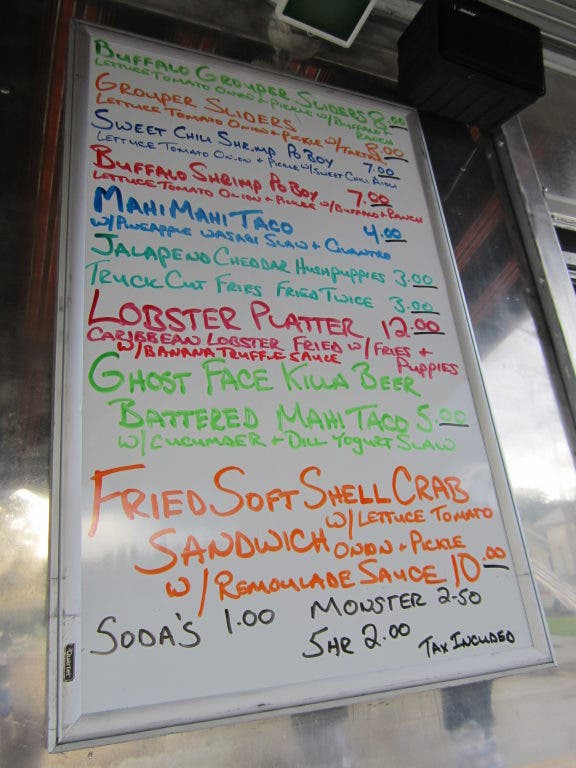 BUFFALO GROUPER SLIDERS 8.00
LETTUCE TOMATO ONION + PICKLE W/ BUFFALO + RANCH
GROUPER SLIDERS 8.00
LETTUCE TOMATO ONION + PICKLE W/ TARTAR
SWEET CHILI SHRIMP PO BOY 7.00
LETTUCE TOMATO ONION + PICKLE W/ SWEET CHILI AIOLI
BUFFALO SHRIMP PO BOY 7.00
LETTUCE TOMATO ONION + PICKLE W/ BUFFALO + RANCH
MAHI MAHI TACO 4.00
W/ PINEAPPLE WASABI SLAW + CILANTRO
JALAPENO CHEDDAR HUSHPUPPIES 3.00
TRUCK CUT FRIES FRIED TWICE 3.00
LOBSTER PLATTER 12.00
CARIBBEAN LOBSTER FRIED W/ FRIES + PUPPIES
W/ BANANA TRUFFLE SAUCE
GHOST FACE KILLA BEER
BATTERED MAHI TACO 5.00
W/ CUCUMBER + DILL YOGURT SLAW
FRIED SOFT SHELL CRAB
SANDWICH W/ LETTUCE TOMATO
ONION + PICKLE
W/ REMOULADE SAUCE 10.00
SODA'S 1.00 MONSTER 2.50
5HR 2.00 TAX INCLUDED
QUARTET